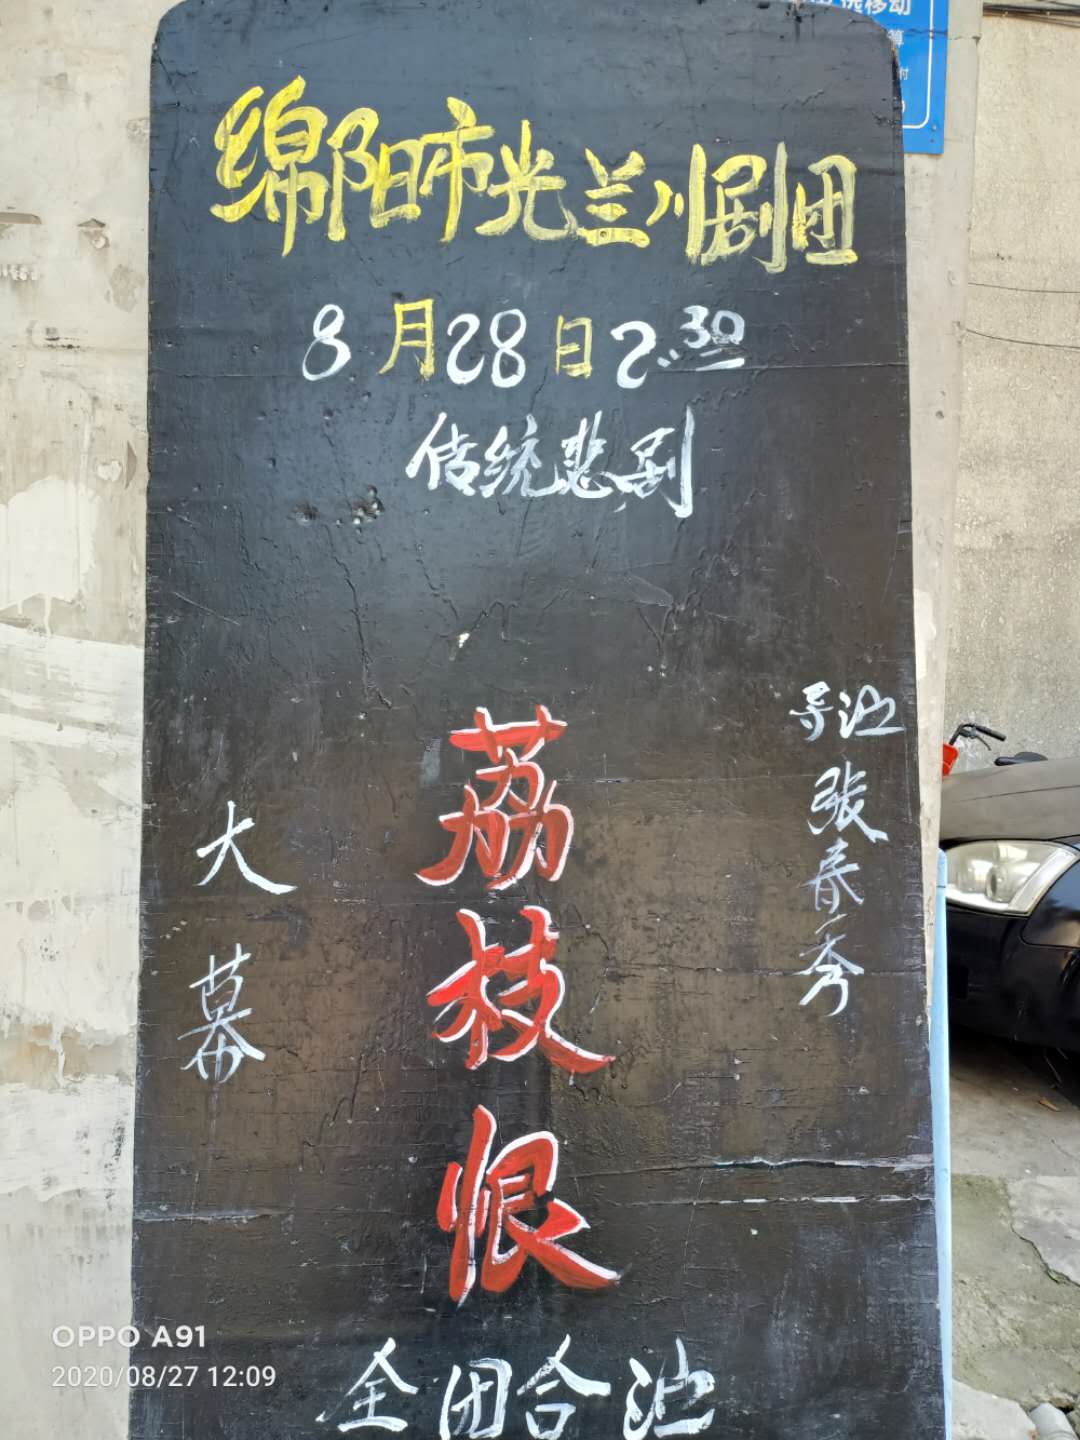 绵阳市光兰川剧团
8月28日2:30
传统悲剧
导演 张春秀
荔枝恨
大幕
全团合演
选移动
OPPO A91
2020/08/27 12:09